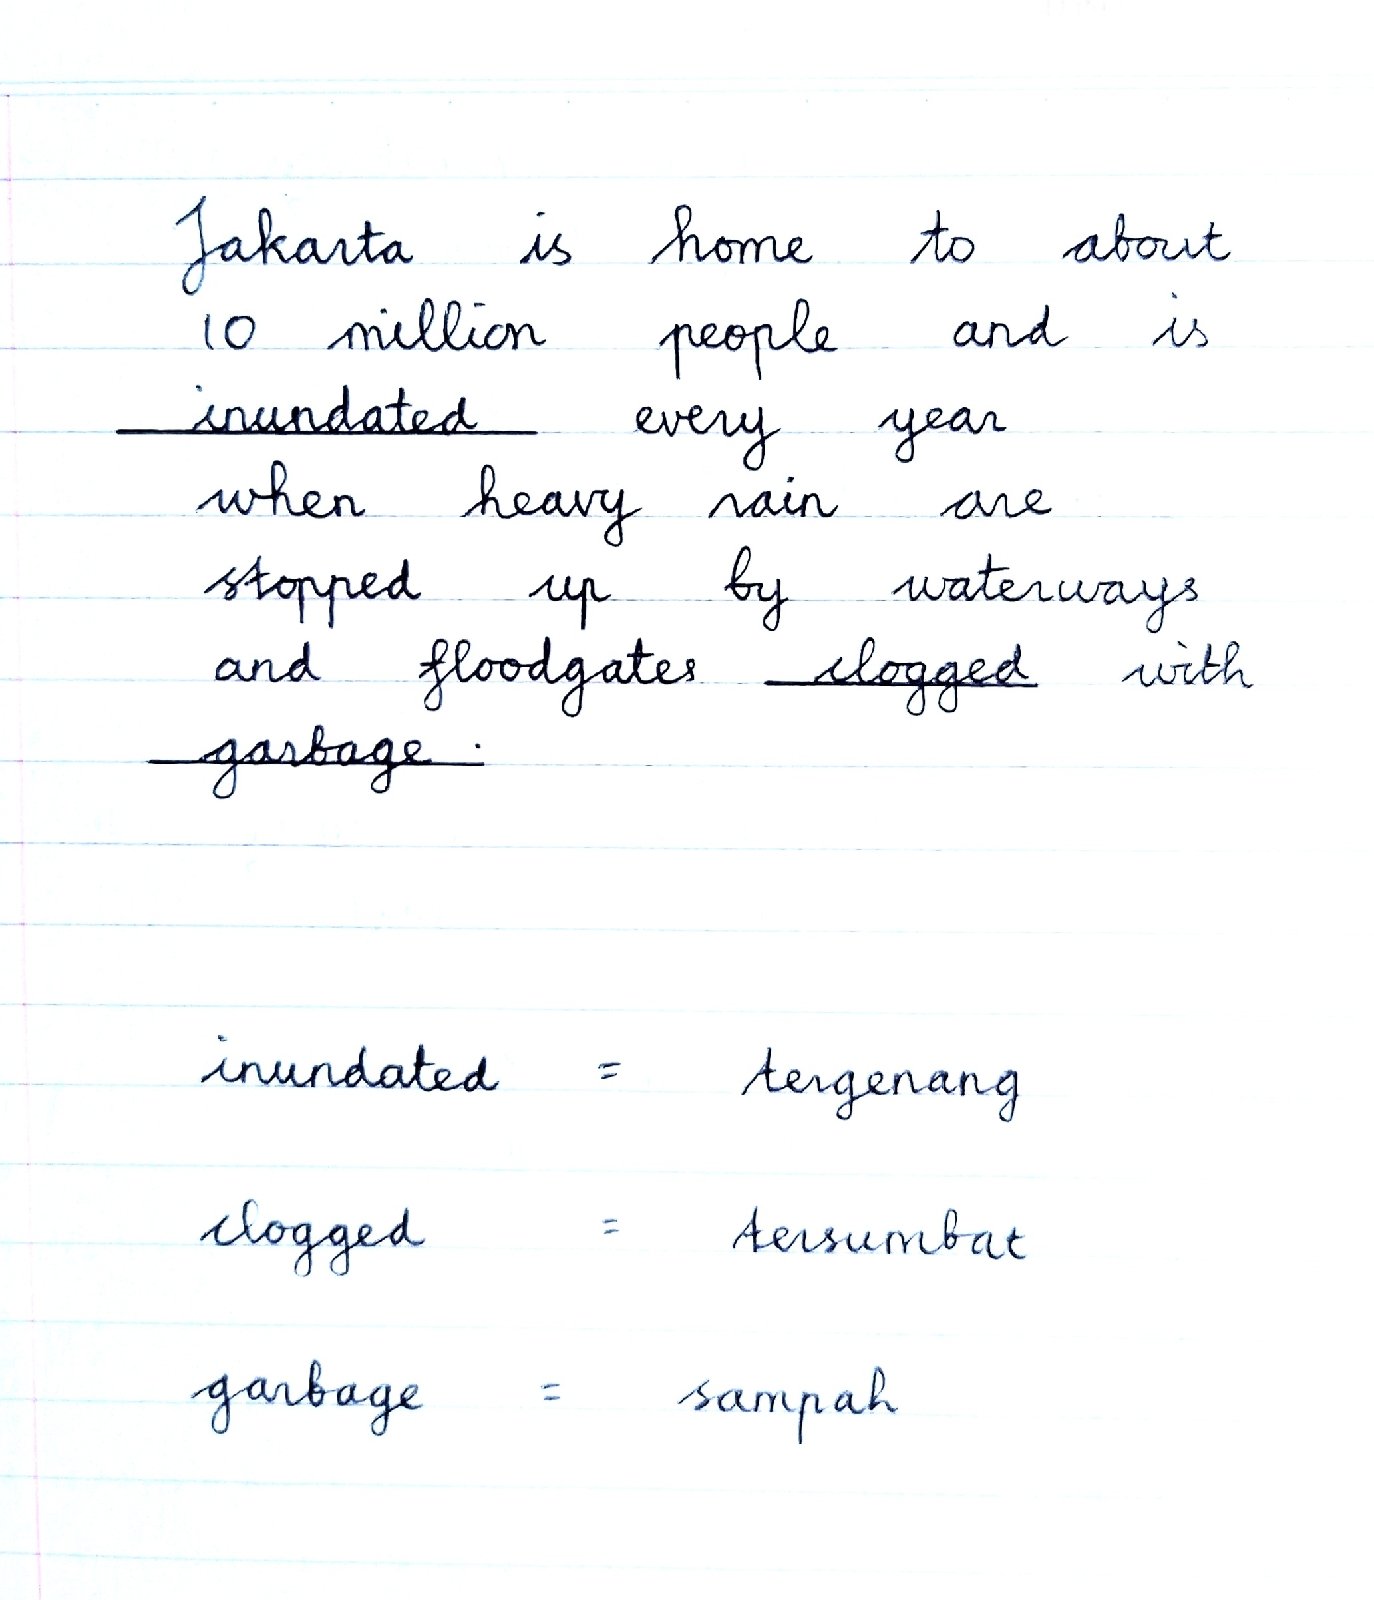 Jakarta is home to about
10 million people and is
inundated every year
when heavy rain are
stopped up by waterways
and floodgates clogged with
garbage.
inundated = tergenang
clogged = tersumbat
garbage = sampah